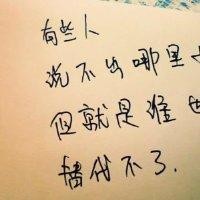 有些人
说不出哪里
但就是谁也
替代不了.